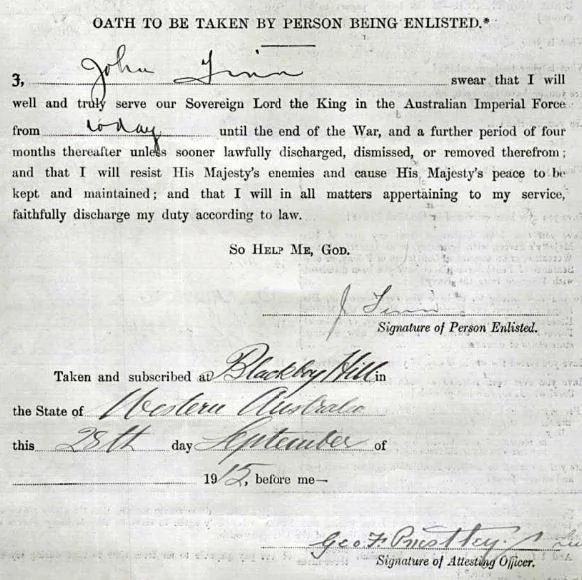 OATH TO BE TAKEN BY PERSON BEING ENLISTED.*
I, John Finn swear that I will
well and truly serve our Sovereign Lord the King in the Australian Imperial Force
from today until the end of the War, and a further period of four
months thereafter unless sooner lawfully discharged, dismissed, or removed therefrom;
and that I will resist His Majesty's enemies and cause His Majesty's peace to be
kept and maintained; and that I will in all matters appertaining to my service,
faithfully discharge my duty according to law.
SO HELP ME, GOD.
J Finn
Signature of Person Enlisted.
Taken and subscribed at Blackboy Hill in
the State of Western Australia
this 28th day September of
1915, before me—
Geo F Priestley.
Signature of Attesting Officer.